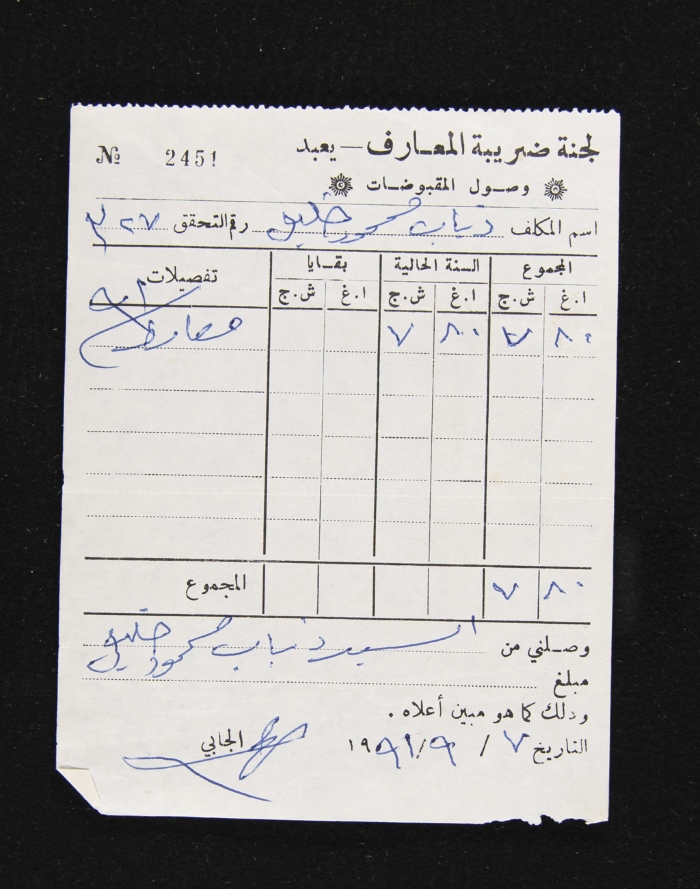 لجنة ضريبة المعارف — يعبد
№ 2451
وصول المقبوضات
اسم المكلف ذياب محمود خليل رقم التحقق ٣٢٧
المجموع السنة الحالية بقايا تفصيلات
ا.غ ش.ج ا.غ ش.ج ا.غ ش.ج
٨٠٠ ٧ ٨٠٠ ٧ معارف
المجموع
٨٠٠ ٧
وصلني من السيد ذياب محمود خليل
مبلغ
وذلك كما هو مبين أعلاه .
التاريخ ٧ / ٩ / ١٩٩١ الجابي